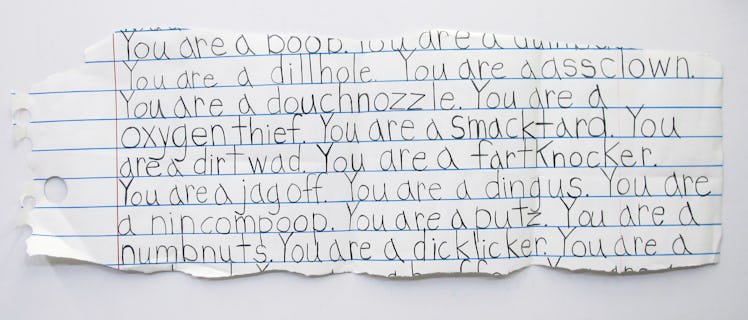 You are a poop. You are a
You are a dillhole. You are a assclown.
You are a douchnozzle. You are a
oxygen thief. You are a smack-tard. You
are a dirt wad. You are a fartknocker.
You are a jagoff. You are a dingus. You are
a nincompoop. You are a putz. You are a
numbnuts. You are a dicklicker. You are a